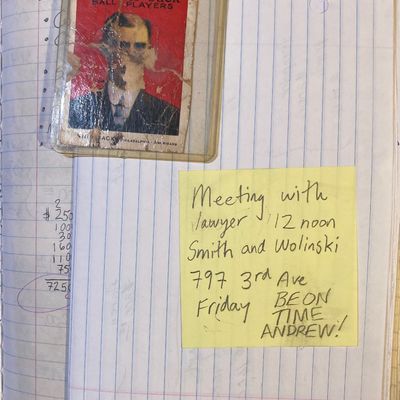 BALL PLAYERS
PHILADELPHIA
2
$ 250
160
110
75
7250
Meeting with
lawyer 12 noon
Smith and Wolinski
797 3rd Ave
Friday BE ON
TIME
ANDREW!